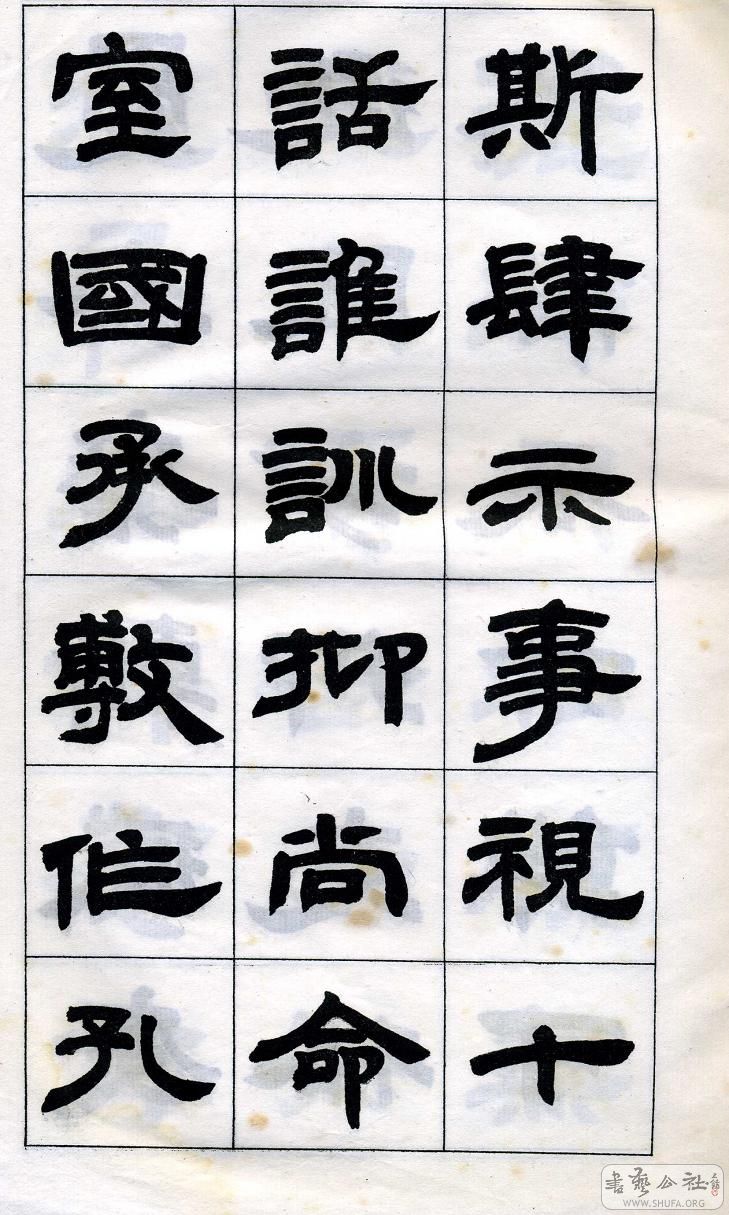 斯肆示事視十
話誰訓抑尚命
室國承敷作孔
書藝公社
WWW.SHUFA.ORG